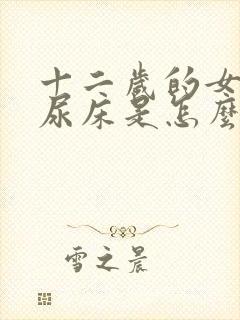 十二歲的女
尿床是怎麼
雪之晨